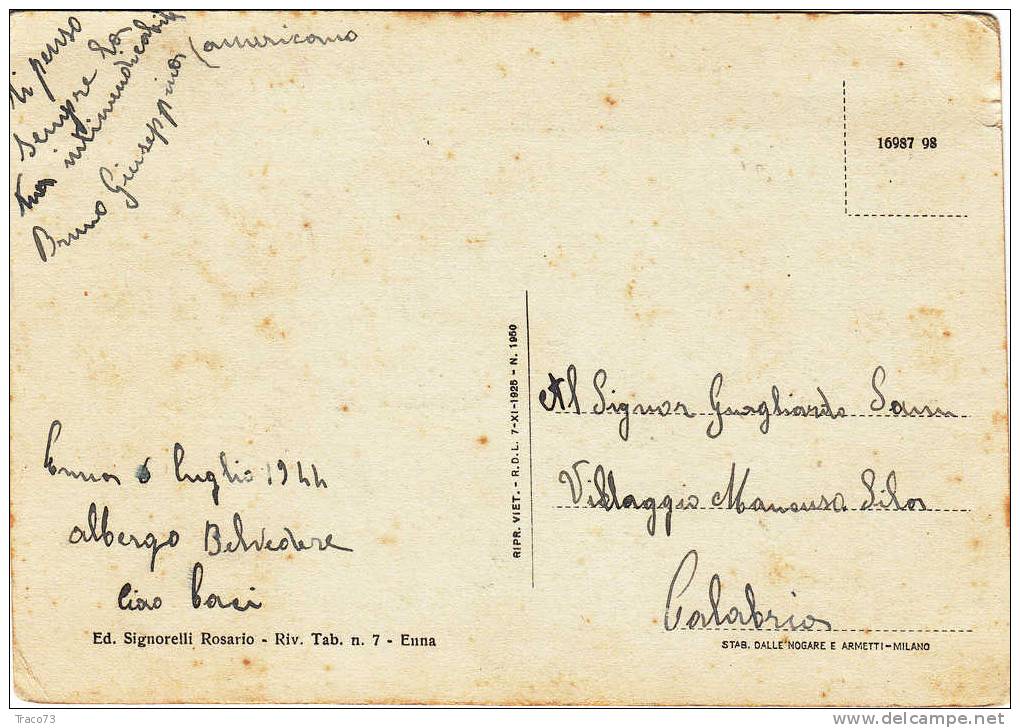 ti penso
sempre la
tua indimendicabile
Bruno Giuseppina
(americano
16987 98
RIPR. VIET. - R.D.L. 7-XI-1925 - N. 1950
Al Signor Guagliardo
Villaggio Mancuso Sila
Calabria
Enna 6 luglio 1944
albergo Belvedere
Ciao baci
Ed. Signorelli Rosario - Riv. Tab. n. 7 - Enna
STAB. DALLE NOGARE E ARMETTI-MILANO
Traco73
delcampe.net